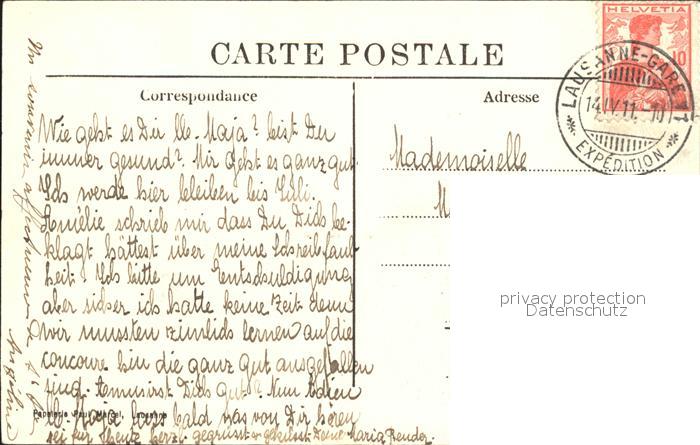 HELVETIA
10
CARTE POSTALE
LAUSANNE-GARE
14.IV.11.-10
EXPÉDITION
Correspondance
Adresse
Wie geht es Dir lb. Maja? bist Du
immer gesund? Mir geht es ganz gut.
Ich werde hier bleiben bis Juli.
Amélie schrieb mir dass Du Dich be-
klagt hättest über meine Schreibfaul
heit? Ich bitte um Entschuldigung
aber sicher ich hatte keine Zeit denn
wir mussten ziemlich lernen auf die
concours hin die ganz gut ausgefallen
sind. Amusirst Dich gut? Nun adieu
lb. Maja lass bald was von Dir hören
sei für heute herzl. gegrüsst u geküsst Deine Maria
Mademoiselle
M
Un souvenir affectueux
Papeterie Paul Marcel, Lausanne
privacy protection
Datenschutz